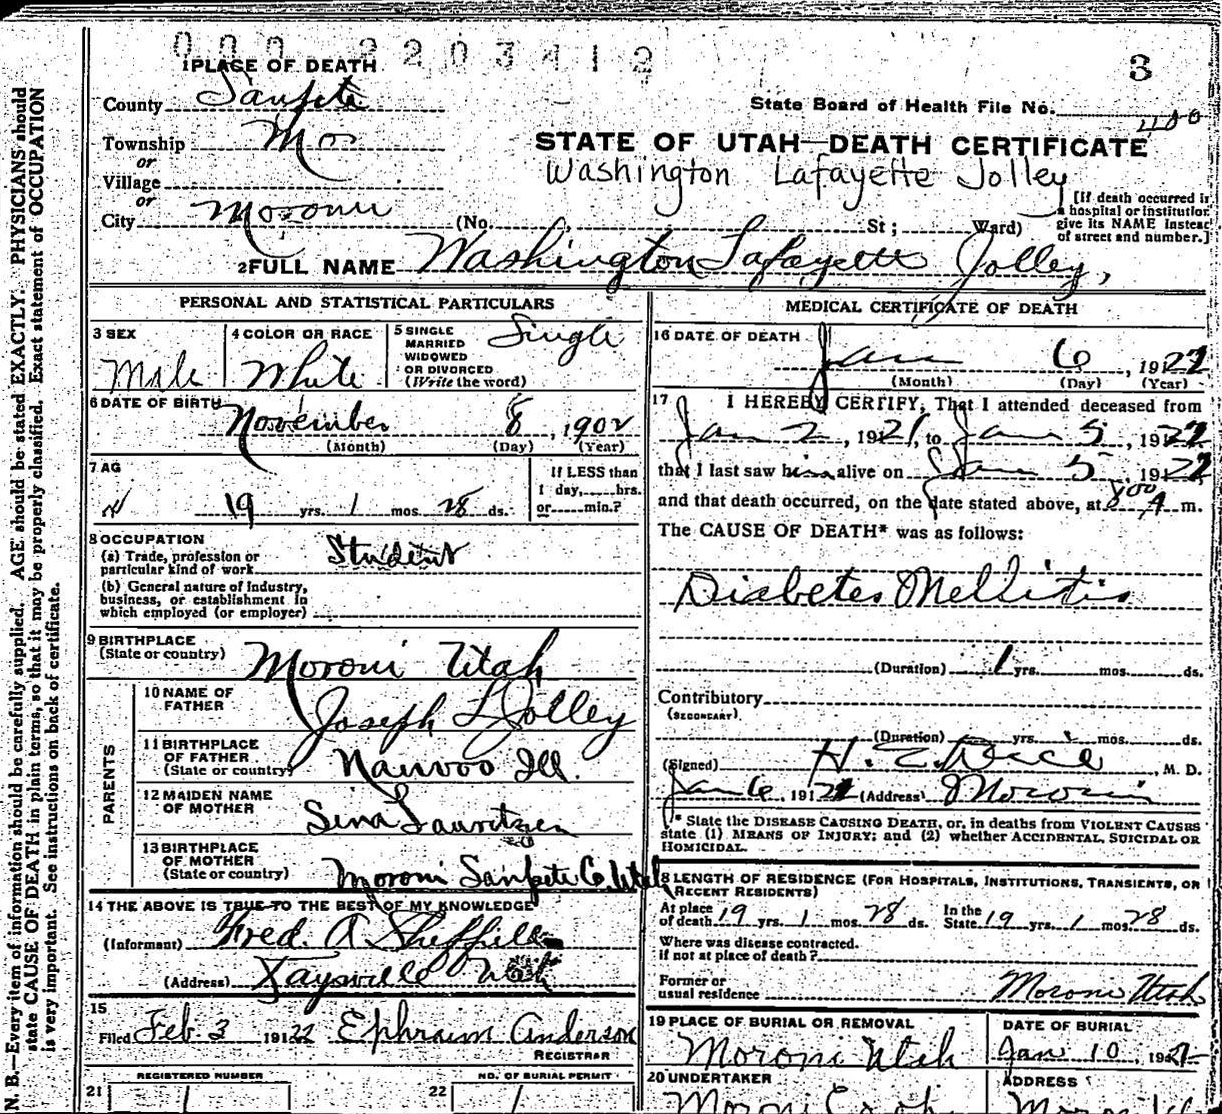 000 2203412
3
1 PLACE OF DEATH
County Sanpete
State Board of Health File No. 400
Township Mor
or
Village
or
City Moroni (No. St; Ward)
STATE OF UTAH—DEATH CERTIFICATE
Washington Lafayette Jolley
[If death occurred in
a hospital or institution
give its NAME instead
of street and number.]
2 FULL NAME Washington Lafayette Jolley,
PERSONAL AND STATISTICAL PARTICULARS
3 SEX
Male
4 COLOR OR RACE
White
5 SINGLE
MARRIED
WIDOWED
OR DIVORCED
(Write the word)
Single
6 DATE OF BIRTH
November 8, 1902
(Month) (Day) (Year)
7 AG
19 yrs. 1 mos. 28 ds.
If LESS than
1 day, hrs.
or min.?
8 OCCUPATION
(a) Trade, profession or
particular kind of work Student
(b) General nature of industry,
business, or establishment in
which employed (or employer)
9 BIRTHPLACE
(State or country) Moroni Utah
PARENTS
10 NAME OF
FATHER Joseph L Jolley
11 BIRTHPLACE
OF FATHER
(State or country) Nauvoo Ill.
12 MAIDEN NAME
OF MOTHER Sina Lauritzen
13 BIRTHPLACE
OF MOTHER
(State or country) Moroni Sanpete Co Utah
14 THE ABOVE IS TRUE TO THE BEST OF MY KNOWLEDGE
(Informant) Fred. A Sheffield
(Address) Kaysville Utah
15
Filed Feb. 3 1922 Ephraim Anderson
REGISTRAR
REGISTERED NUMBER
21
NO. OF BURIAL PERMIT
22
MEDICAL CERTIFICATE OF DEATH
16 DATE OF DEATH
Jan 6, 1922
(Month) (Day) (Year)
17 I HEREBY CERTIFY, That I attended deceased from
Jan 2, 1921, to Jan 5, 1922
that I last saw him alive on Jan 5 1922
and that death occurred, on the date stated above, at 8 00 A m.
The CAUSE OF DEATH* was as follows:
Diabetes Mellistis
(Duration) 1 yrs. mos. ds.
Contributory
(SECONDARY)
(Duration) yrs. mos. ds.
(Signed) H. , M. D.
Jan 6, 1922 (Address) Moroni
* State the DISEASE CAUSING DEATH, or, in deaths from VIOLENT CAUSES
state (1) MEANS OF INJURY; and (2) whether ACCIDENTAL, SUICIDAL OR
HOMICIDAL.
18 LENGTH OF RESIDENCE (FOR HOSPITALS, INSTITUTIONS, TRANSIENTS, OR
RECENT RESIDENTS)
At place
of death 19 yrs. 1 mos. 28 ds.
In the
State 19 yrs. 1 mos. 28 ds.
Where was disease contracted.
if not at place of death?
Former or
usual residence Moroni Utah
19 PLACE OF BURIAL OR REMOVAL
Moroni Utah
DATE OF BURIAL
Jan 10, 192
20 UNDERTAKER
Moroni Coop
ADDRESS
N. B.—Every item of information should be carefully supplied. AGE should be stated EXACTLY. PHYSICIANS should
state CAUSE OF DEATH in plain terms, so that it may be properly classified. Exact statement of OCCUPATION
is very important. See instructions on back of certificate.